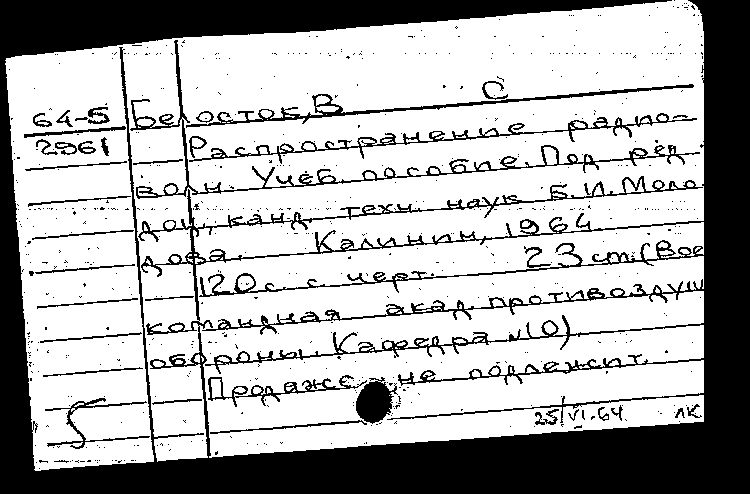 64-5 Белосток, В С
2961 Распространение радио-
волн. Учеб. пособие. Под ред.
доц., канд. техн. наук Б.И. Моло
дова. Калинин, 1964
120 с. с черт. 23 см. (Вое
командная акад. противоздуш
обороны. Кафедра №10)
Продаже не подлежит.
25/VI.64 ЛК